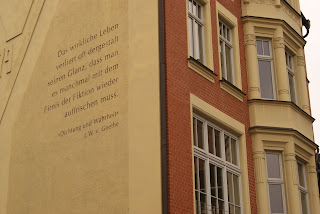 Das wirkliche Leben
verliert oft dergestalt
seinen Glanz, dass man
es manchmal mit dem
Firnis der Fiktion wieder
auffrischen muss.
»Dichtung und Wahrheit«
J. W. v. Goethe